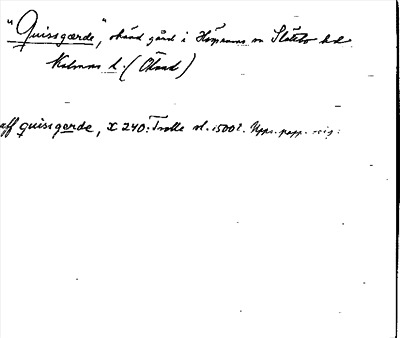 "Quissgærde", okänd gård i Högsrums sn Slättbo hd
Kalmar l. (Öland)
aff quissgærde, X 240: Trolle sl. 1500 t. Upps. papp. reg: